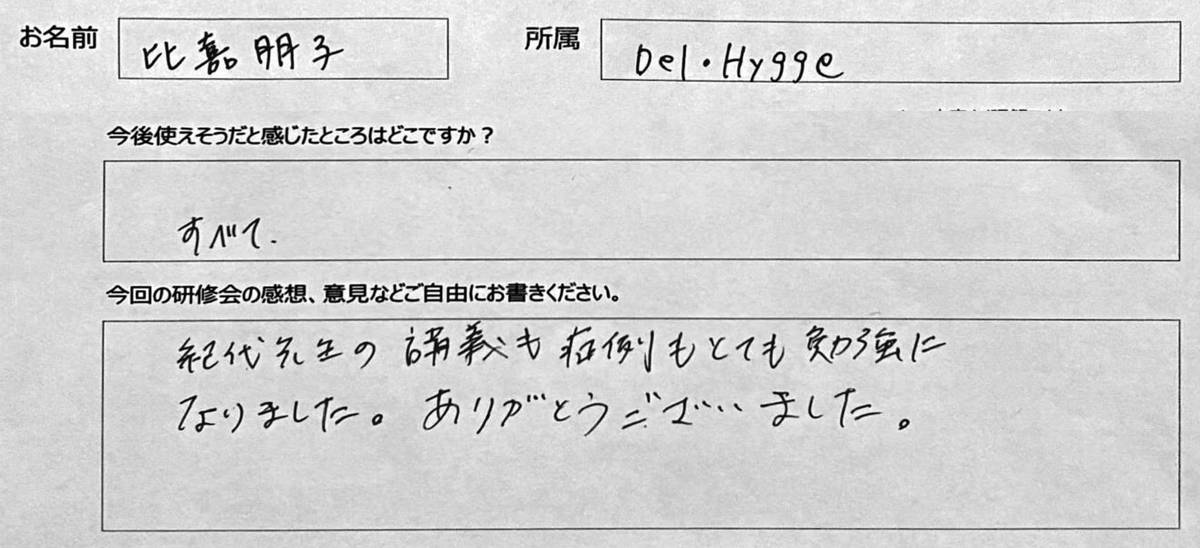 お名前 比嘉朋子 所属 Del・Hygge
今後使えそうだと感じたところはどこですか？
すべて.
今回の研修会の感想、意見などご自由にお書きください。
紀代先生の講義も症例もとても勉強に
なりました。ありがとうございました。